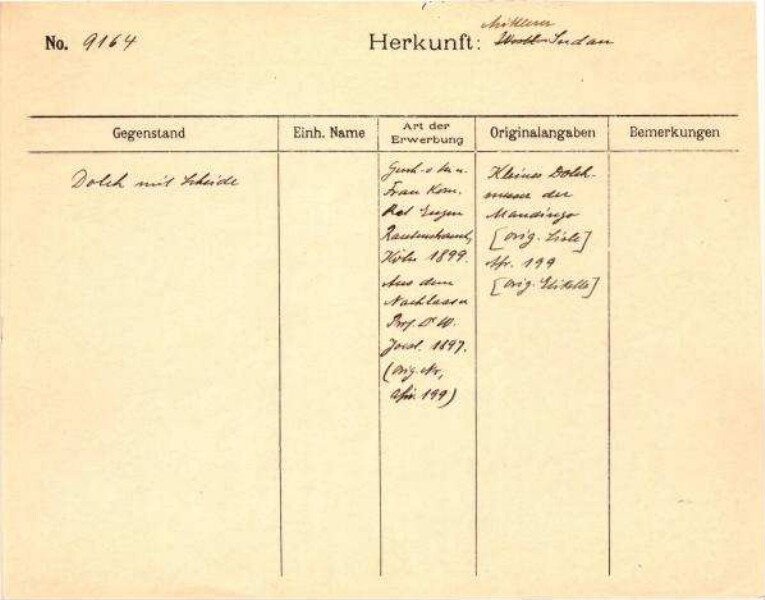 Mittlerer
No. 9164 Herkunft: West-Sudan
Gegenstand Einh. Name Art der Erwerbung Originalangaben Bemerkungen
Dolch mit Scheide
Gesch. d.
Frau Kom.
Rat Eugen
Rautenstrauch,
Köln 1899.
Aus dem
Nachlasse
Prof. Dr W.
Joest. 1897.
(orig. Nr,
Afr. 199)
Kleines Dolch-
messer der
Mandingo
[orig. Liste]
Afr. 199
[orig. Etikette]